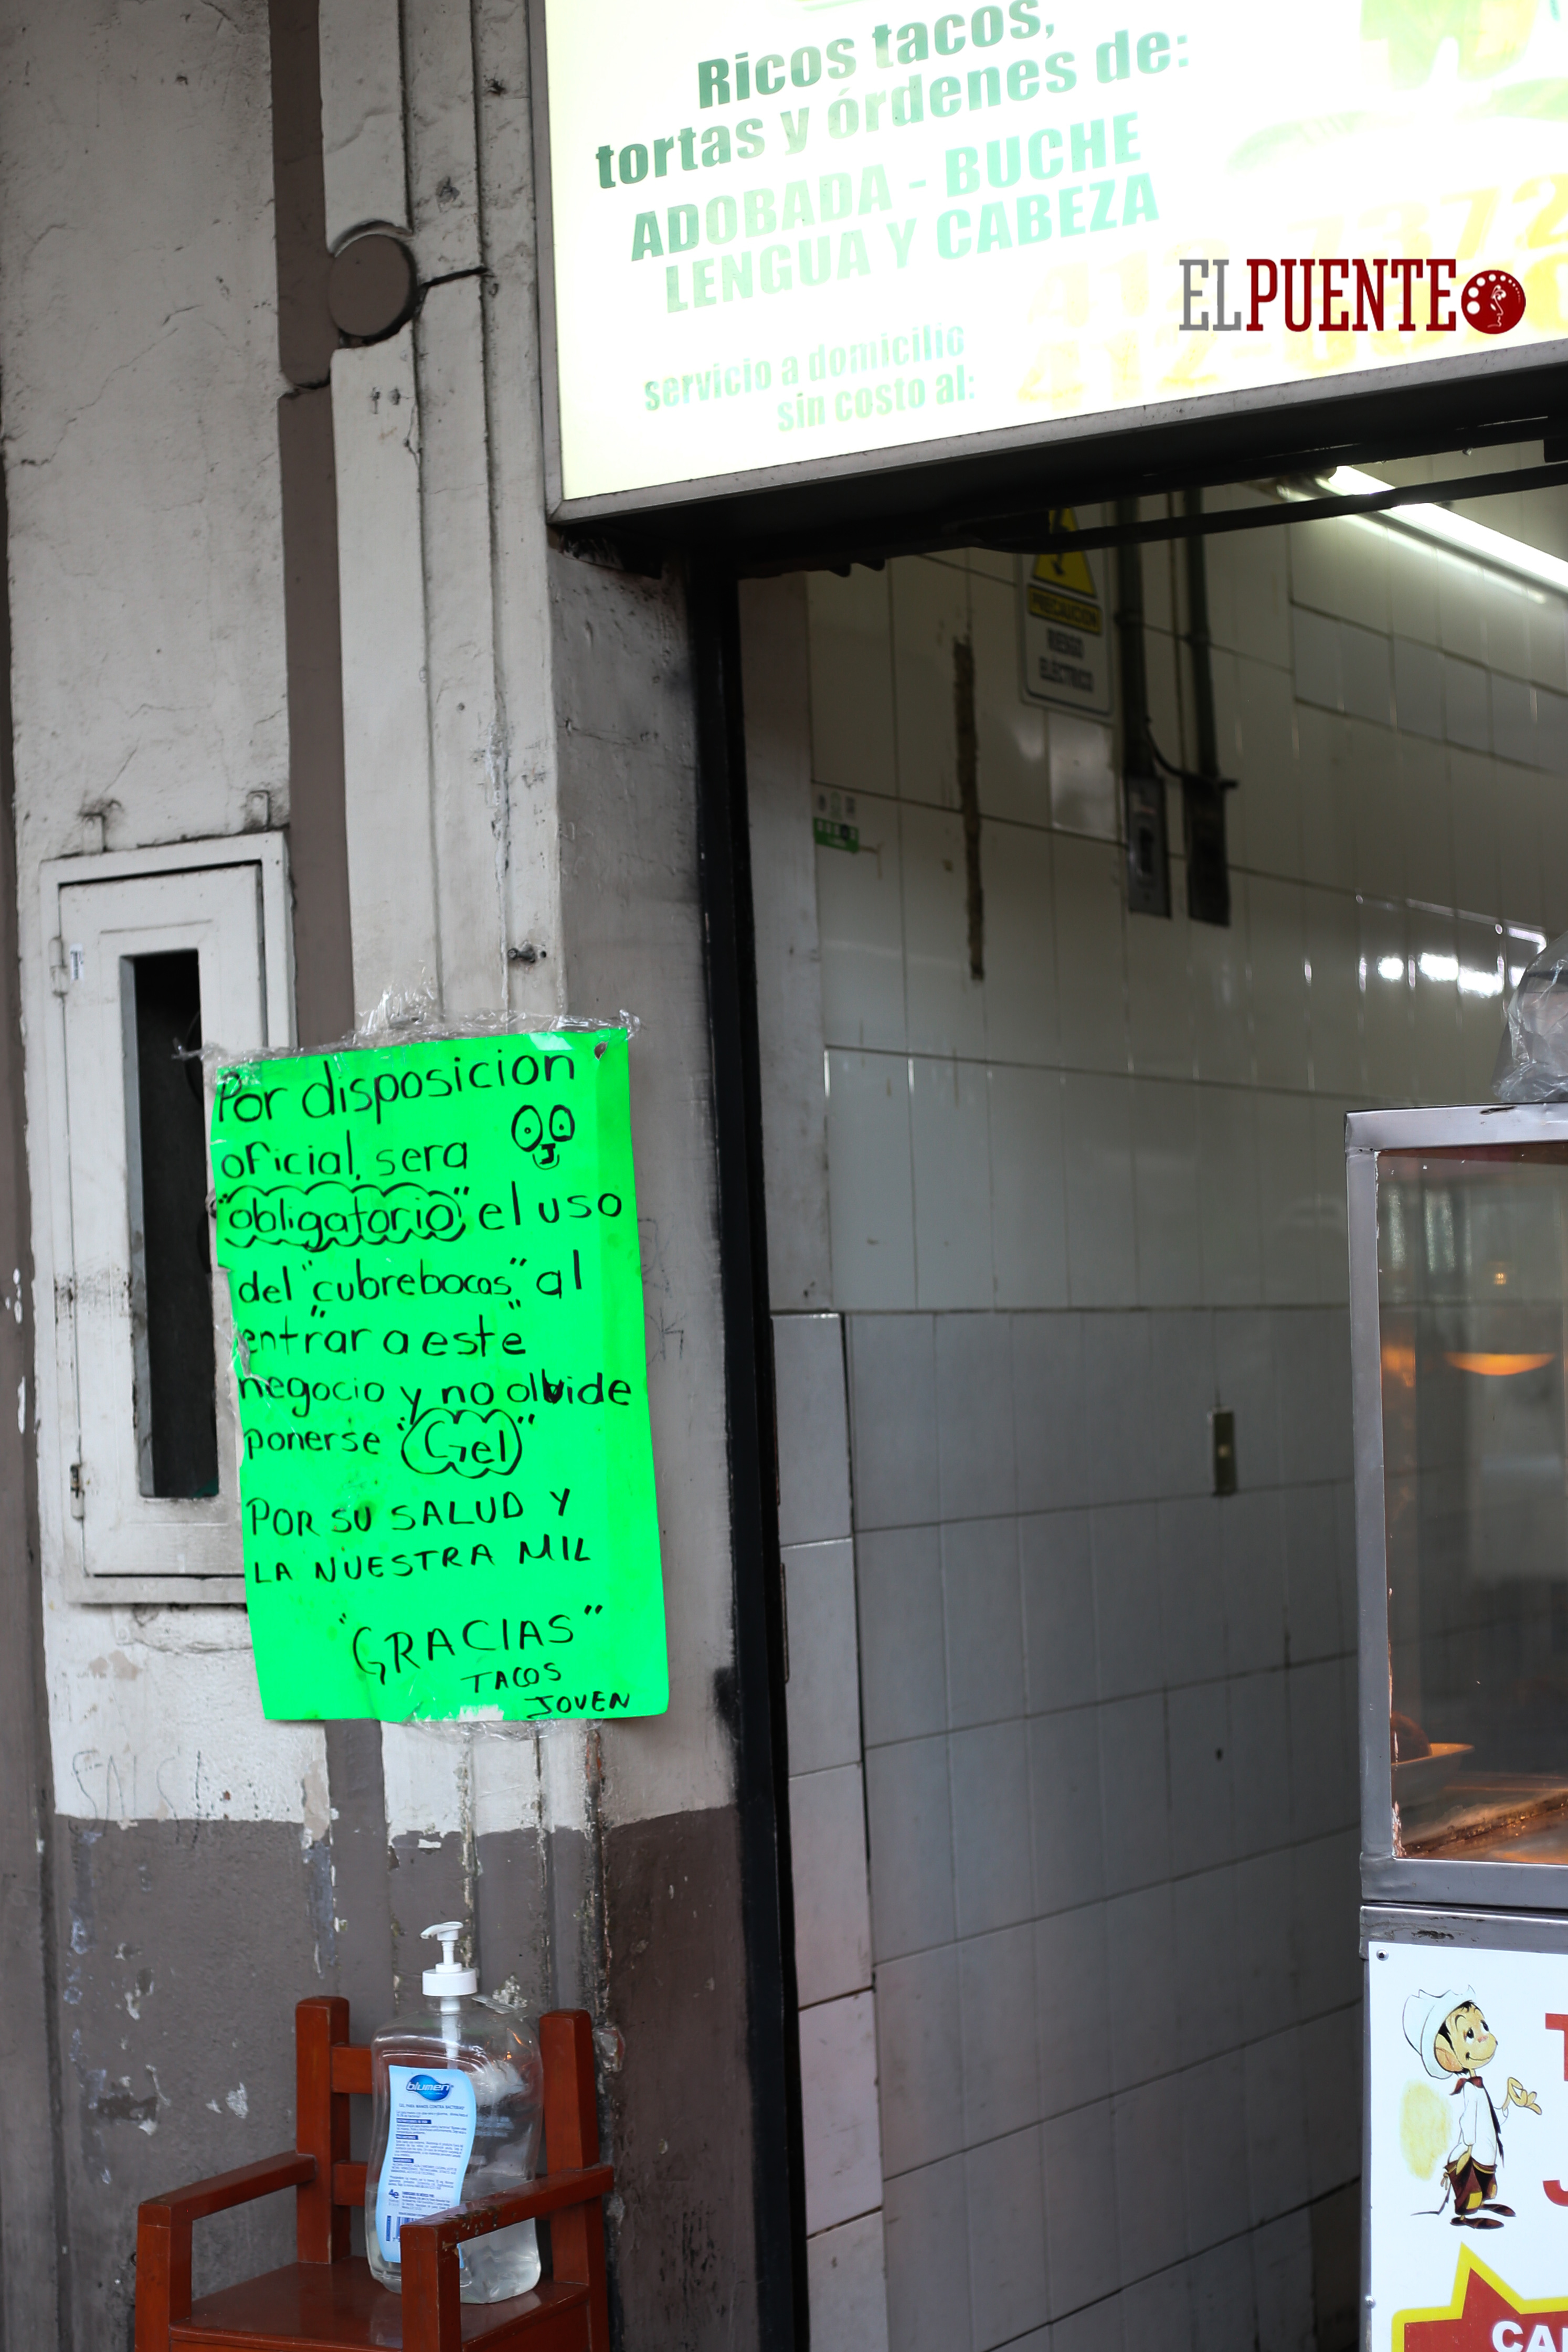 Ricos tacos,
tortas y órdenes de:
ADOBADA - BUCHE
LENGUA Y CABEZA
servicio a domicilio
sin costo al:
ELPUENTE
PRECAUCIÓN
RIESGO
ELÉCTRICO
Por disposicion
oficial, sera
"obligatorio" el uso
del "cubrebocas" al
"entrar a este"
negocio y no olvide
ponerse "Gel"
POR SU SALUD Y
LA NUESTRA MIL
"GRACIAS"
TACOS
JOVEN
blumen
GEL PARA MANOS CONTRA BACTERIAS